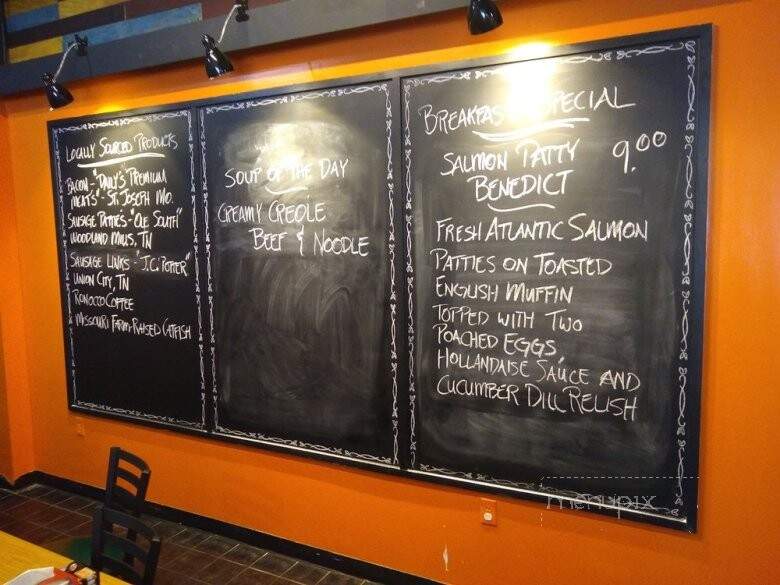 LOCALLY SOURCED PRODUCTS
BACON - "DAILY'S PREMIUM
MEATS" - ST. JOSEPH MO.
SAUSAGE PATTIES - "OLE SOUTH"
WOODLAND MILLS, TN
SAUSAGE LINKS - "J.C. POTTER"
UNION CITY, TN
RONOCO COFFEE
MISSOURI FARM-RAISED CATFISH
SOUP OF THE DAY
CREAMY CREOLE
BEEF & NOODLE
BREAKFAST SPECIAL
SALMON PATTY 9.00
BENEDICT
FRESH ATLANTIC SALMON
PATTIES ON TOASTED
ENGLISH MUFFIN
TOPPED WITH TWO
POACHED EGGS,
HOLLANDAISE SAUCE AND
CUCUMBER DILL RELISH
menupix